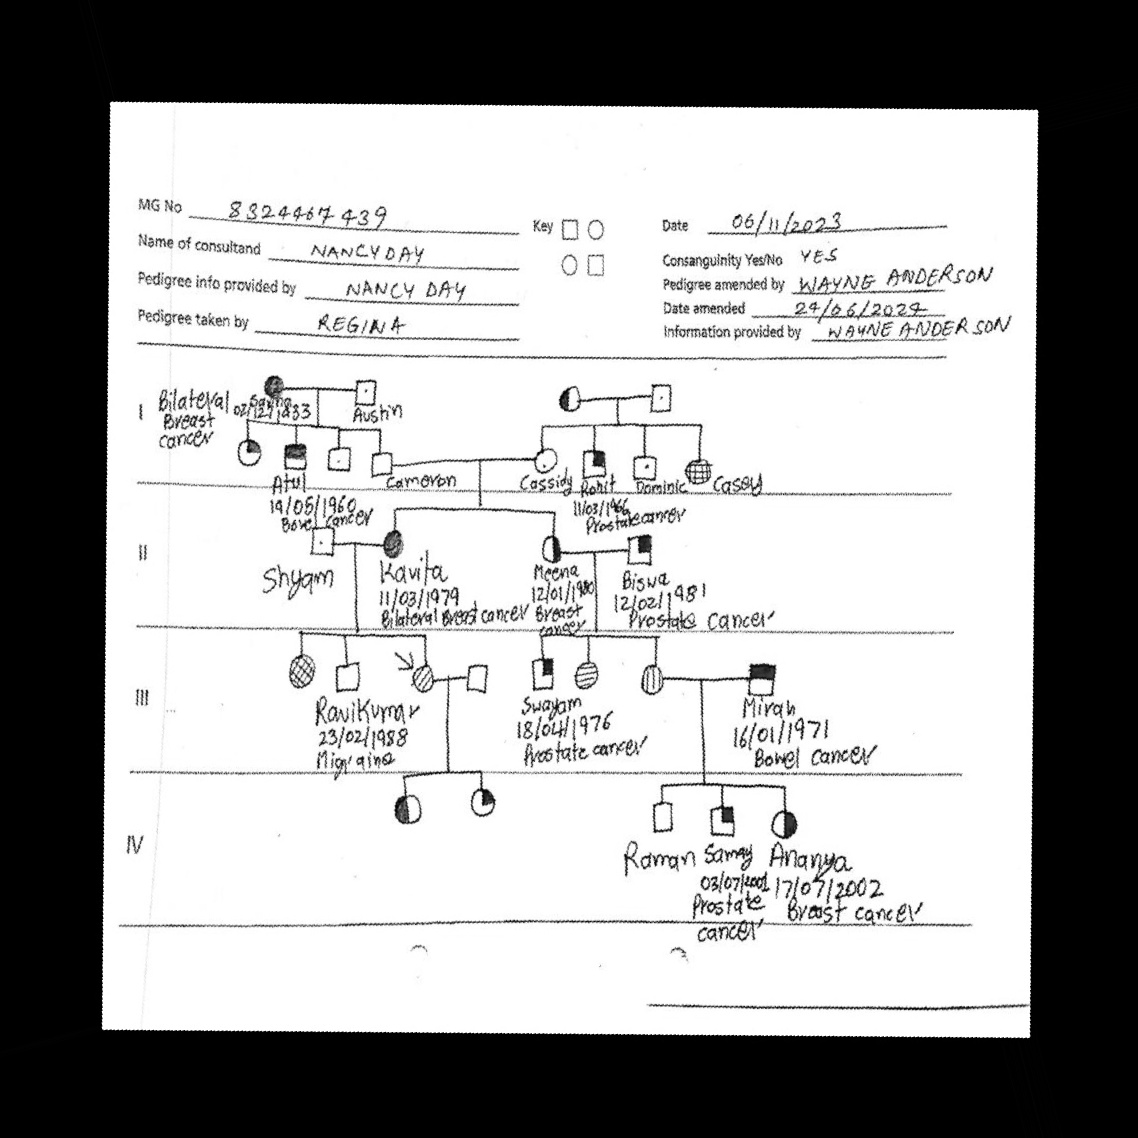 MG No 8324467439
Name of consultand NANCY DAY
Pedigree info provided by NANCY DAY
Pedigree taken by REGINA
Key
Date 06/11/2023
Consanguinity Yes/No YES
Pedigree amended by WAYNE ANDERSON
Date amended 24/06/2024
Information provided by WAYNE ANDERSON
I
Bilateral
Breast
cancer
Austin
Atul
19/05/1960
Cancer
Cameron
Cassidy
Rohit
11/03/1966
Prostate cancer
Dominic
Casey
II
Shyam
Kavita
11/03/1979
Bilateral Breast cancer
Meena
12/01/1980
Breast
cancer
Biswa
12/02/1981
Prostate cancer
III
RaviKumar
23/02/1988
Migraine
Swayam
18/04/1976
Prostate cancer
Mirah
16/01/1971
Bowel cancer
IV
Raman
Samay
03/07/2001
Prostate
cancer
Ananya
17/07/2002
Breast cancer